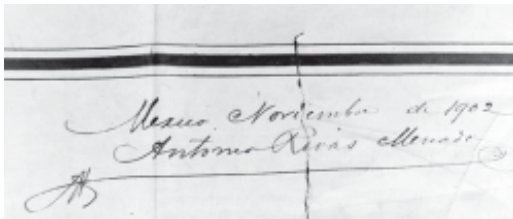 Mexico Noviembre de 1902
Antonio Rivas Mercado